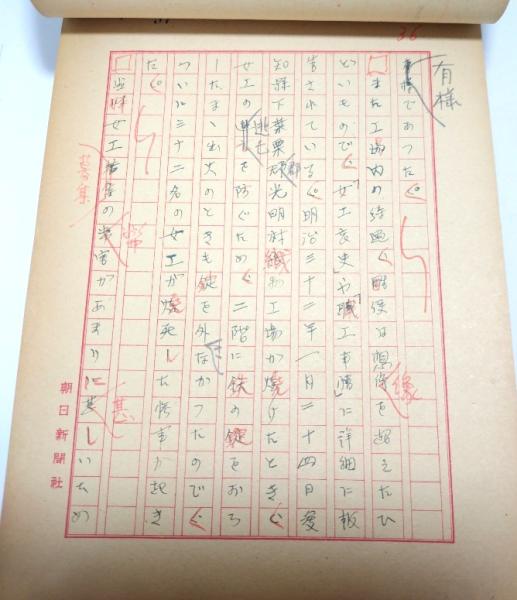 36
有様
であった。
また工場内の待遇、雇役は想像を超えたひ
どいもので、「女工哀史」や「職工事情」に詳細に報
告されている。明治三十三年一月二十四日愛
知県下葉栗郡光明村織物工場が焼けたとき、
女工の逃亡を防ぐため、二階に鉄の錠をおろ
したまま出火のときも錠を外さなかったので、
ついに三十二名の女工が焼死した惨事が起き
た。
当時女工募集の弊害があまりに甚しいため
朝日新聞社